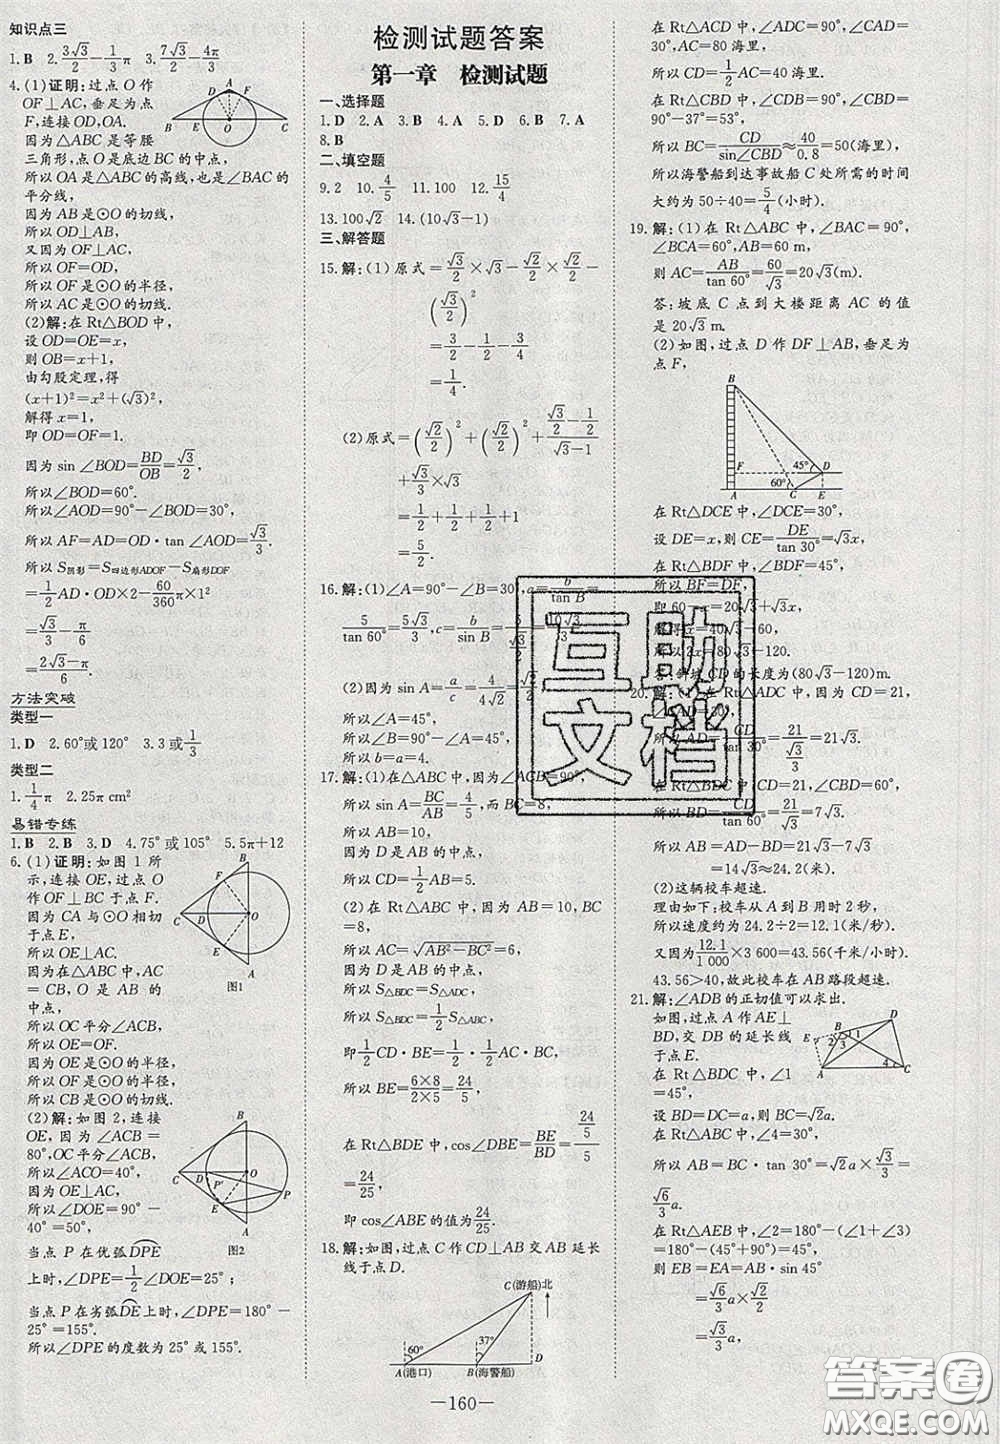 知识点三
1.B 2.3√3/2-1/3π 3.4√3/3-π
4.(1)证明:过点O作
OF⊥AC,垂足为点
F,连接OD,OA.
因为△ABC是等腰
三角形,点O是底边BC的中点,
所以OA是△ABC的高线,也是∠BAC的
平分线,
因为AB是⊙O的切线,
所以OD⊥AB,
又因为OF⊥AC,
所以OF=OD,
因为OD是⊙O的半径,
所以OF是⊙O的半径,
所以AC是⊙O的切线.
(2)解:在Rt△BOD中,
设OD=OE=x,
则OB=x+1,
由勾股定理,得
(x+1)²=x²+(√3)²,
解得x=1.
即OD=OF=1.
因为sin∠BOD=BD/OB=√3/2,
所以∠BOD=60°,
所以∠AOD=90°-∠BOD=30°,
所以AF=AD=OD·tan∠AOD=√3/3.
所以S阴影=S四边形ADOF-S扇形DOF
=1/2AD·OD×2-60/360π×1²
=√3/3-π/6
=(2√3-π)/6.
方法突破
类型一
1.D 2.60°或120° 3.3或1/3
类型二
1.1/4π 2.25π cm²
易错专练
1.B 2.B 3.D 4.75°或105° 5.5π+12
6.(1)证明:如图1所
示,连接OE,过点O
作OF⊥BC于点F.
因为CA与⊙O相切
于点E,
所以OE⊥CA.
因为在△ABC中,AC
=CB,O是AB的中
点,
所以OC平分∠ACB,
所以OE=OF.
因为OE是⊙O的半径,
所以OF是⊙O的半径,
所以CB是⊙O的切线.
图1
(2)解:如图2,连接
OE,因为∠ACB=
80°,
所以∠ACO=40°,
因为OE⊥AC,
所以∠DOE=90°-
40°=50°;
图2
当点P在优弧DPE
上时,∠DPE=1/2∠DOE=25°;
当点P在劣弧DE上时,∠DPE=180°-
25°=155°.
所以∠DPE的度数为25°或155°.
检测试题答案
第一章 检测试题
一、选择题
1.D 2.A 3.B 4.A 5.D 6.B 7.A
8.B
二、填空题
9.2 10.4/5 11.100 12.15/4
13.100√2 14.(10√3-1)
三、解答题
15.解:(1)原式=√3/2×√3-√2/2×√2/2-
(√3/2)²
=3/2-1/2-3/4
=1/4.
(2)原式=(√2/2)²+(√2/2)²+(√3/2-1/2)/(√3-1)
+√3/3·√3
=1/2+1/2+1/2+1
=5/2.
16.解:(1)∠A=90°-∠B=30°,a=b/tan B=
5/tan 60°=5√3/3,c=b/sin B=5/(√3/2)=10√3/3.
(2)因为sin A=a/c=4/4√2=√2/2,
所以∠A=45°,
所以∠B=90°-∠A=45°,
所以b=a=4.
17.解:(1)在△ABC中,因为∠ACB=90°,
所以sin A=BC/AB=4/5,而BC=8,
所以AB=10,
因为D是AB的中点,
所以CD=1/2AB=5.
(2)在Rt△ABC中,因为AB=10,BC
=8,
所以AC=√(AB²-BC²)=6,
因为D是AB的中点,
所以S△BDC=S△ADC,
所以S△BDC=1/2S△ABC,
即1/2CD·BE=1/2·1/2AC·BC,
所以BE=6×8/2×5=24/5,
在Rt△BDE中,cos∠DBE=BE/BD=(24/5)/5=
24/25,
即cos∠ABE的值为24/25.
18.解:如图,过点C作CD⊥AB交AB延长
线于点D.
C(游船) 北
60° 37°
A(港口) B(海警船) D
在Rt△ACD中,∠ADC=90°,∠CAD=
30°,AC=80海里,
所以CD=1/2AC=40(海里).
在Rt△CBD中,∠CDB=90°,∠CBD=
90°-37°=53°,
所以BC=CD/sin∠CBD≈40/0.8=50(海里),
所以海警船到达事故船C处所需的时间
大约为50÷40=5/4(小时).
19.解:(1)在Rt△ABC中,∠BAC=90°,
∠BCA=60°,AB=60 m,
则AC=AB/tan 60°=60/√3=20√3(m).
答:坡底C点到大楼距离AC的值
是20√3 m.
(2)如图,过点D作DF⊥AB,垂足为
点F,
在Rt△DCE中,∠DCE=30°,
设DE=x,则CE=DE/tan 30°=√3x,
在Rt△BDF中,∠BDF=45°,
所以BF=DF,
即60-x=20√3+√3x,
解得x=40√3-60.
所以2x=80√3-120.
答:斜坡CD的长度为(80√3-120)m.
20.解:(1)在Rt△ADC中,因为CD=21,
所以AD=21/(√3/3)=21√3.
在Rt△BDC中,CD=21,∠CBD=60°,
所以BD=7√3,
所以AB=AD-BD=21√3-7√3
=14√3≈24.2(米).
(2)这辆校车超速.
理由如下:校车从A到B用时2秒,
所以速度约为24.2÷2=12.1(米/秒).
又因为12.1/1 000×3 600=43.56(千米/小时).
43.56>40,故此校车在AB路段超速.
21.解:∠ADB的正切值可以求出.
如图,过点A作AE⊥
BD,交DB的延长线
于点E.
在Rt△BDC中,∠1
=45°,
设BD=DC=a,则BC=√2a.
在Rt△ABC中,∠4=30°,
所以AB=BC·tan 30°=√2a×√3/3=
√6/3a.
在Rt△AEB中,∠2=180°-(∠1+∠3)
=180°-(45°+90°)=45°,
则EB=EA=AB·sin 45°
=√6/3a×√2/2
=√3/3a.
—160—
互助
文档
答案圈
MXQE.COM